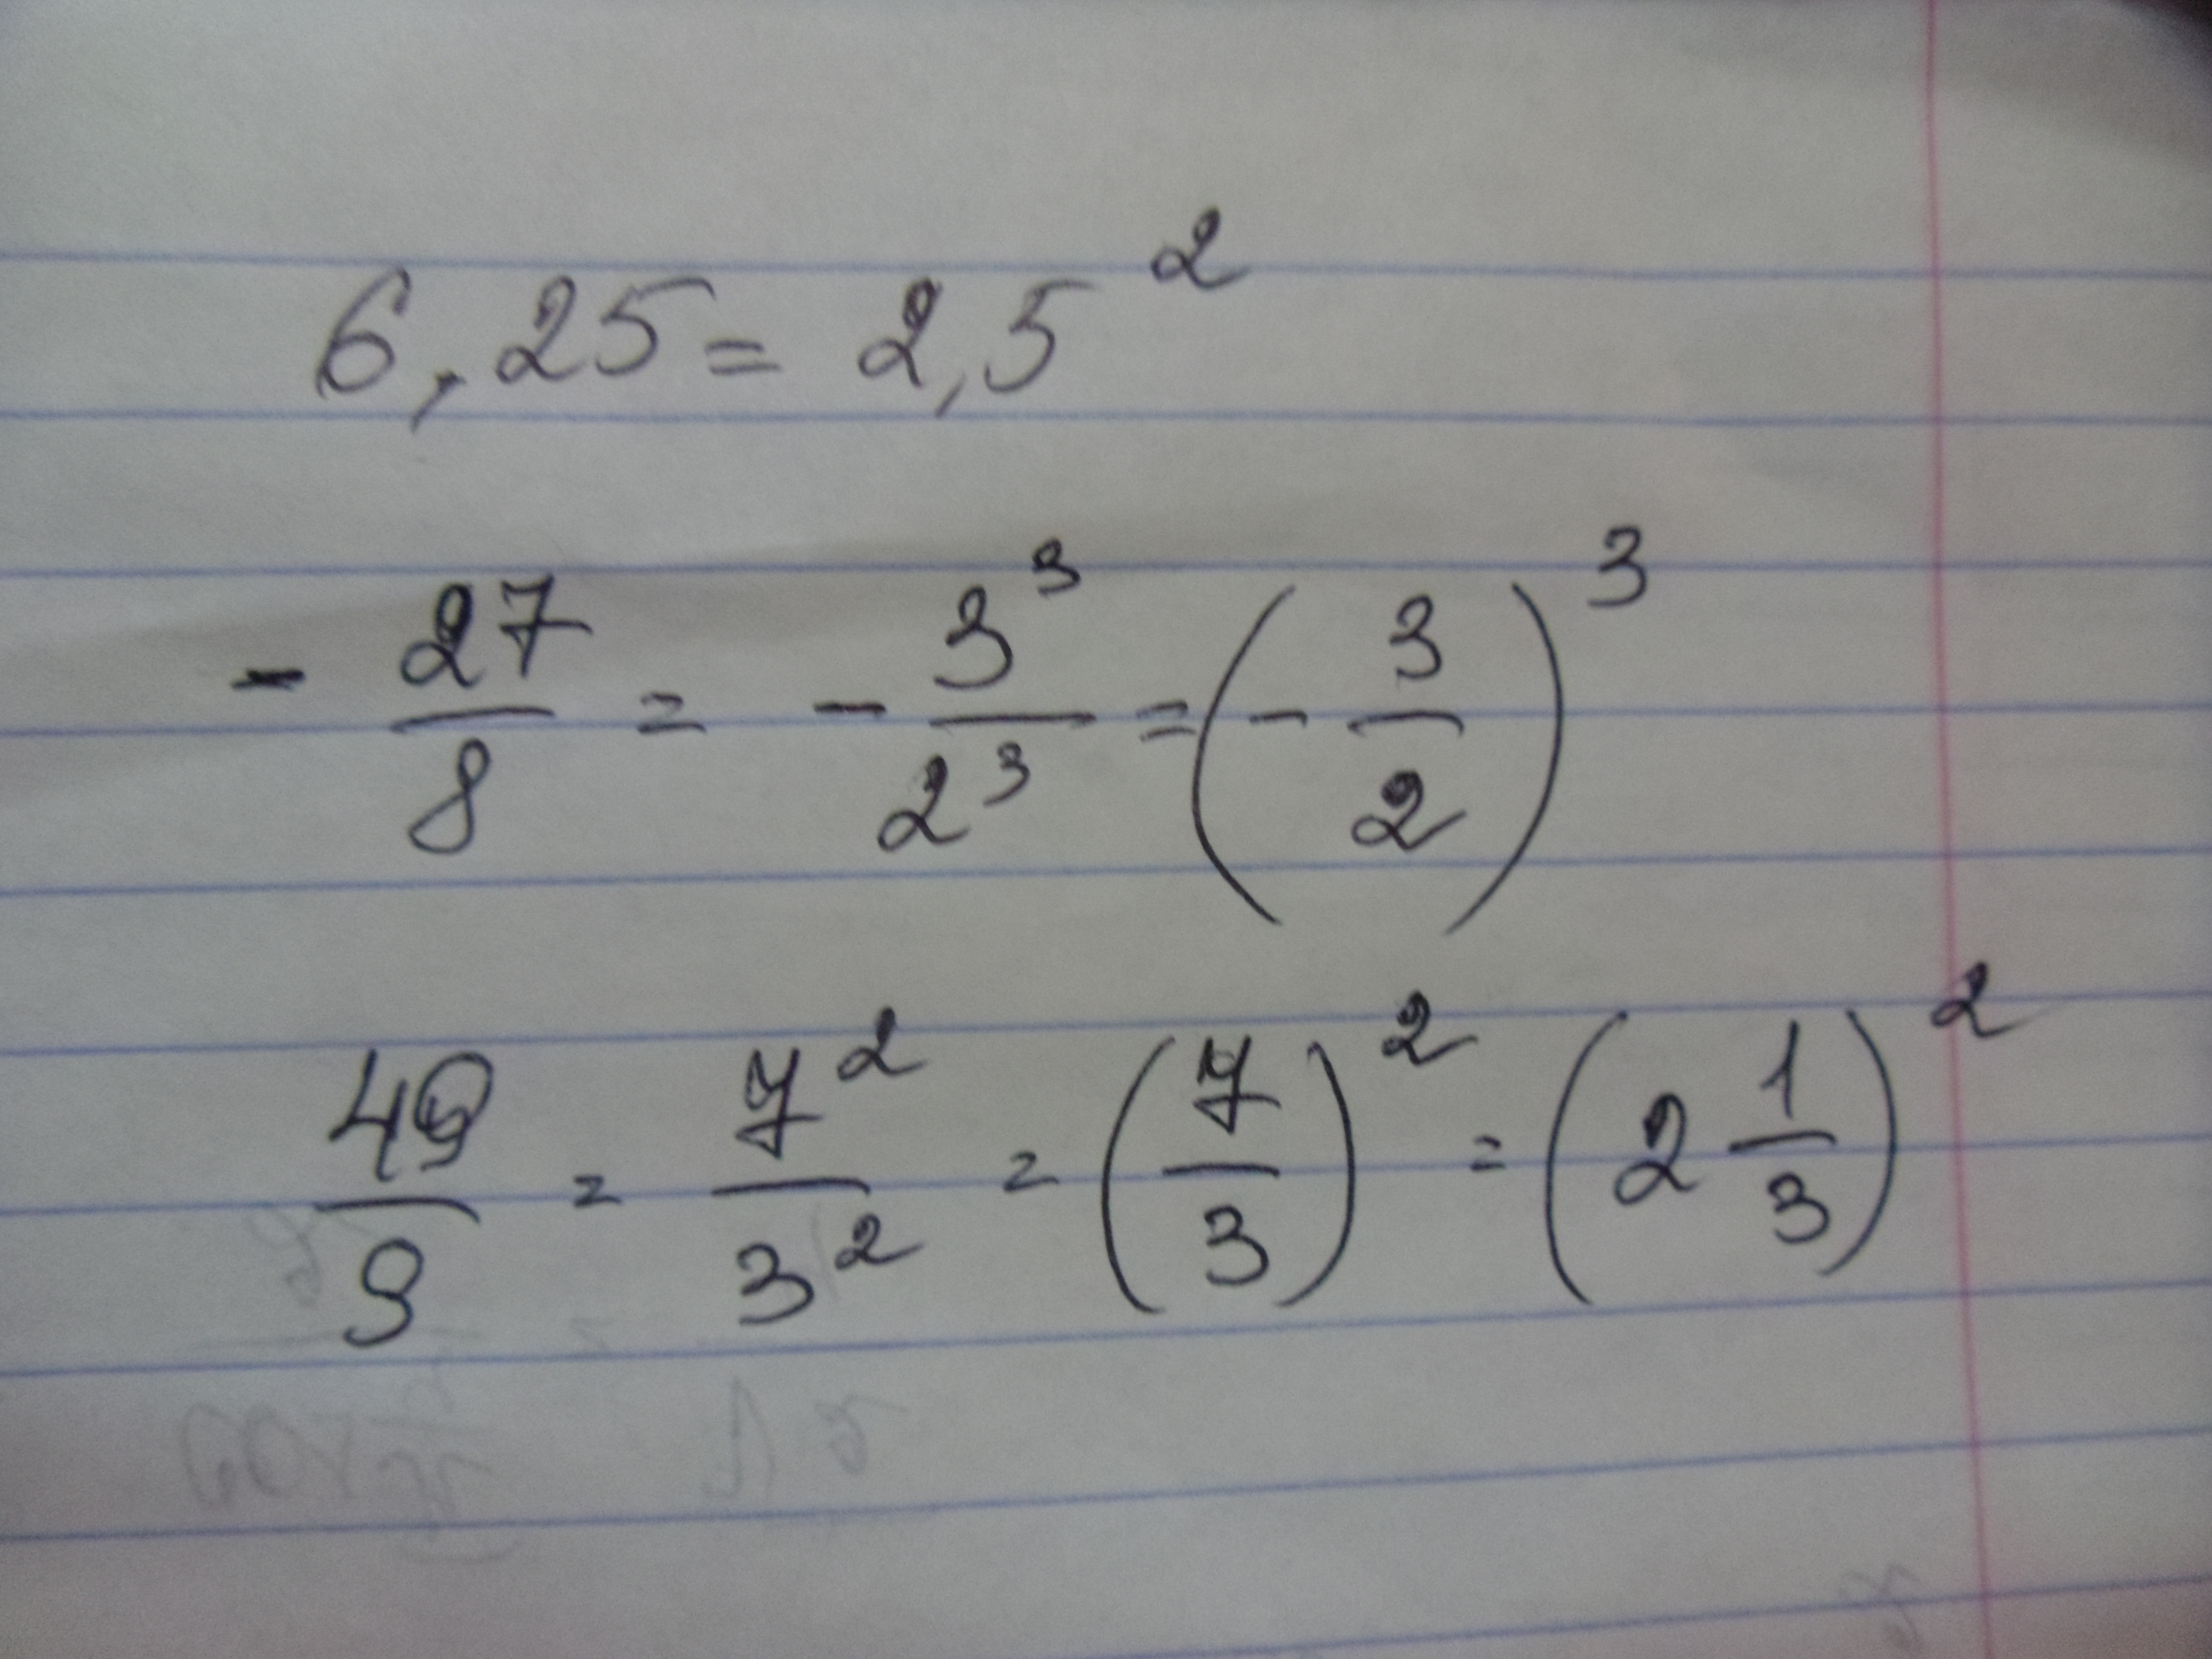 6,25 = 2,5²
- 27/8 = - 3³/2³ = (- 3/2)³
49/9 = 7²/3² = (7/3)² = (2 1/3)²